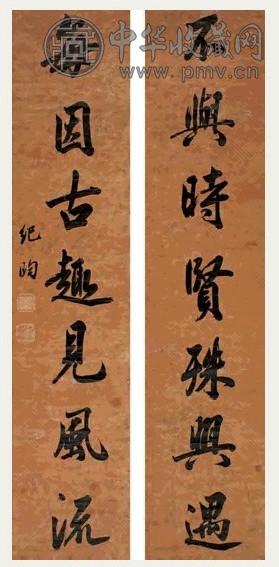 中华收藏网
www.pmv.cn
不與時賢殊興遇
每因古趣見風流
紀昀